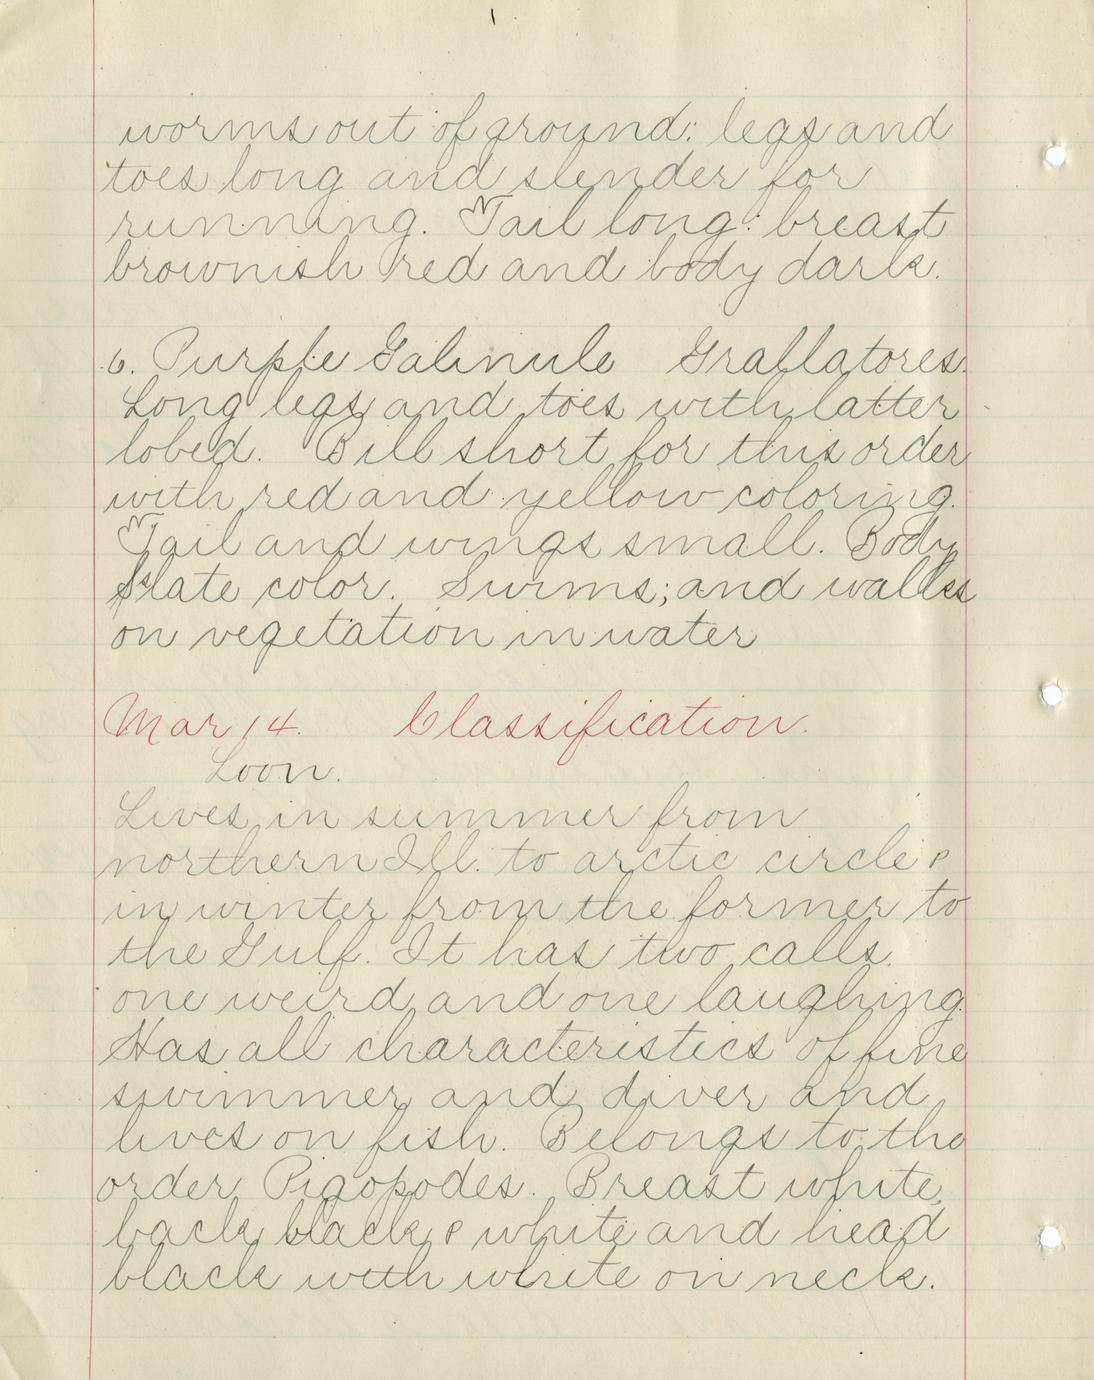 worms out of ground: legs and
toes long and slender for
running. Tail long: breast
brownish red and body dark.
6. Purple Galinule Grallatores.
Long legs and toes with latter
lobed. Bill short for this order
with red and yellow coloring.
Tail and wings small. Body
slate color. Swims; and walks
on vegetation in water
Mar 14. Classification.
Loon.
Lives in summer from
northern Ill. to arctic circle &
in winter from the former to
the Gulf. It has two calls.
one weird and one laughing.
Has all characteristics of fine
swimmer and diver and
lives on fish. Belongs to the
order Pigopodes. Breast white,
back black & white and head
black with white on neck.